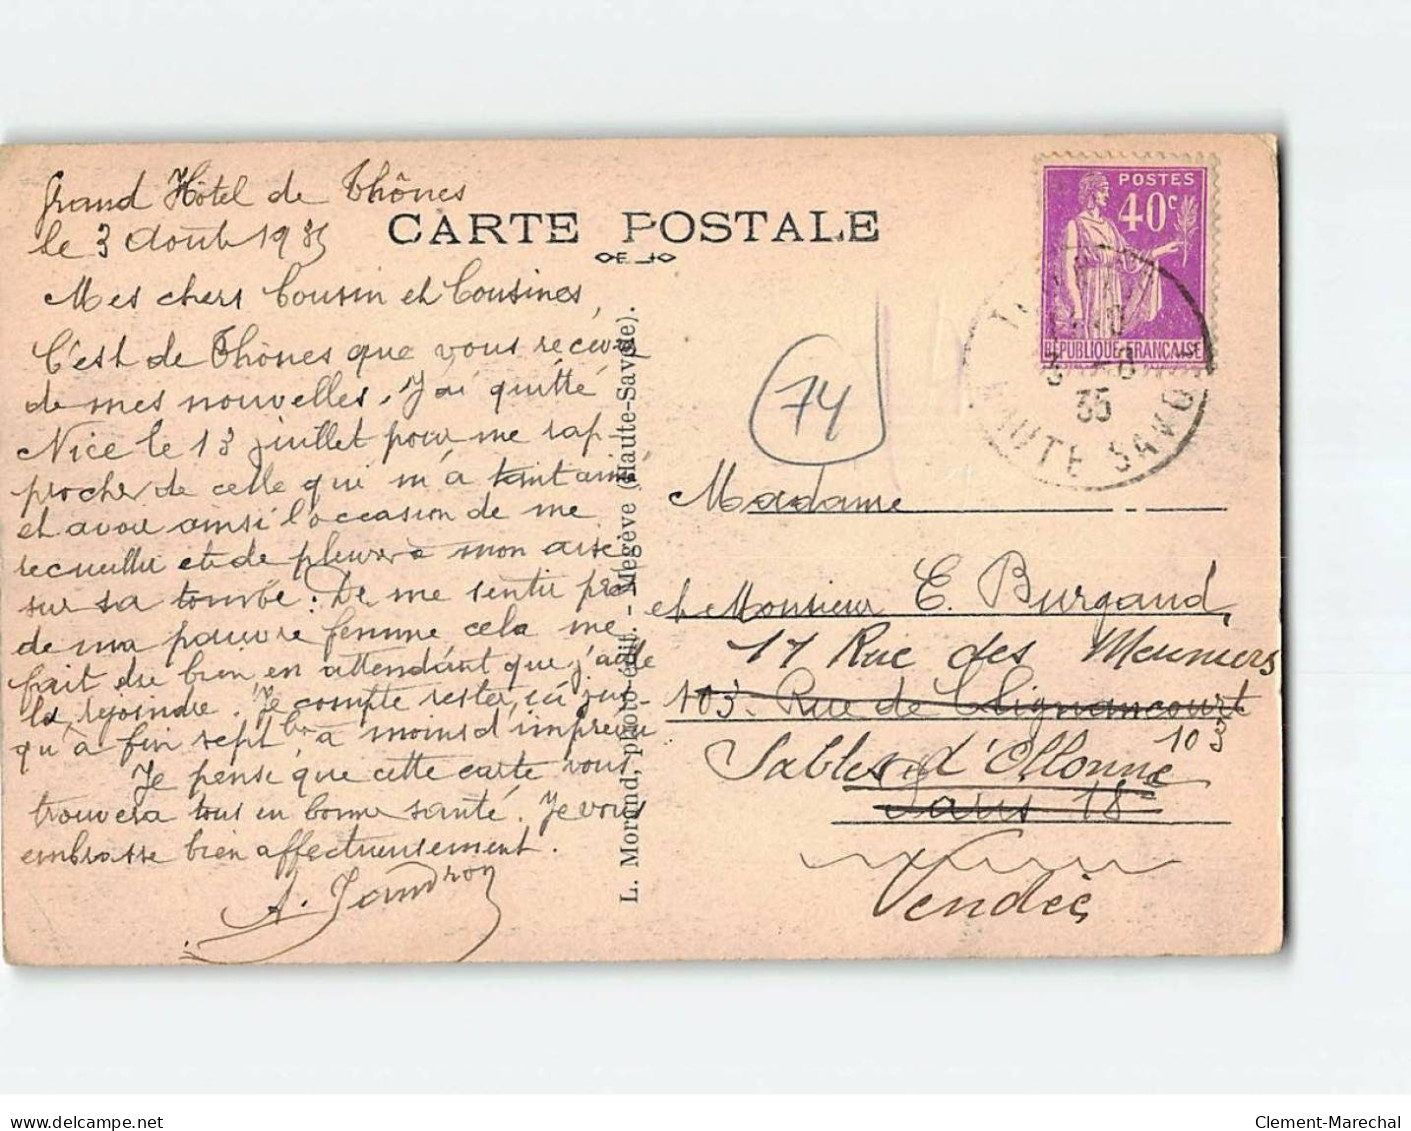 Grand Hôtel de Thônes
le 3 Août 1935
CARTE POSTALE
Mes chers Cousin et Cousines,
C'est de Thônes que vous recevez
de mes nouvelles. J'ai quitté
Nice le 13 juillet pour me rap-
procher de celle qui m'a tant aimé
et avoir ainsi l'occasion de me
recueillir et de pleurer à mon aise
sur sa tombe. De me sentir près
de ma pauvre femme cela me
fait du bien en attendant que j'aille
la rejoindre. Je compte rester ici jus-
qu'à fin sept bre à moins d'imprévu
Je pense que cette carte vous
trouvera tous en bonne santé. Je vous
embrasse bien affectueusement.
A. Jandron
L. Morand, photo-édit. - Megève (Haute-Savoie).
POSTES
40c
RÉPUBLIQUE FRANÇAISE
3 -8
35
HAUTE SAVOIE
74
Madame
et Monsieur E. Burgaud,
17 Rue des Meuniers
103. Rue de Clignancourt
10
Sables d'Ollonne
Paris 18e
Vendée
www.delcampe.net
Clement-Marechal